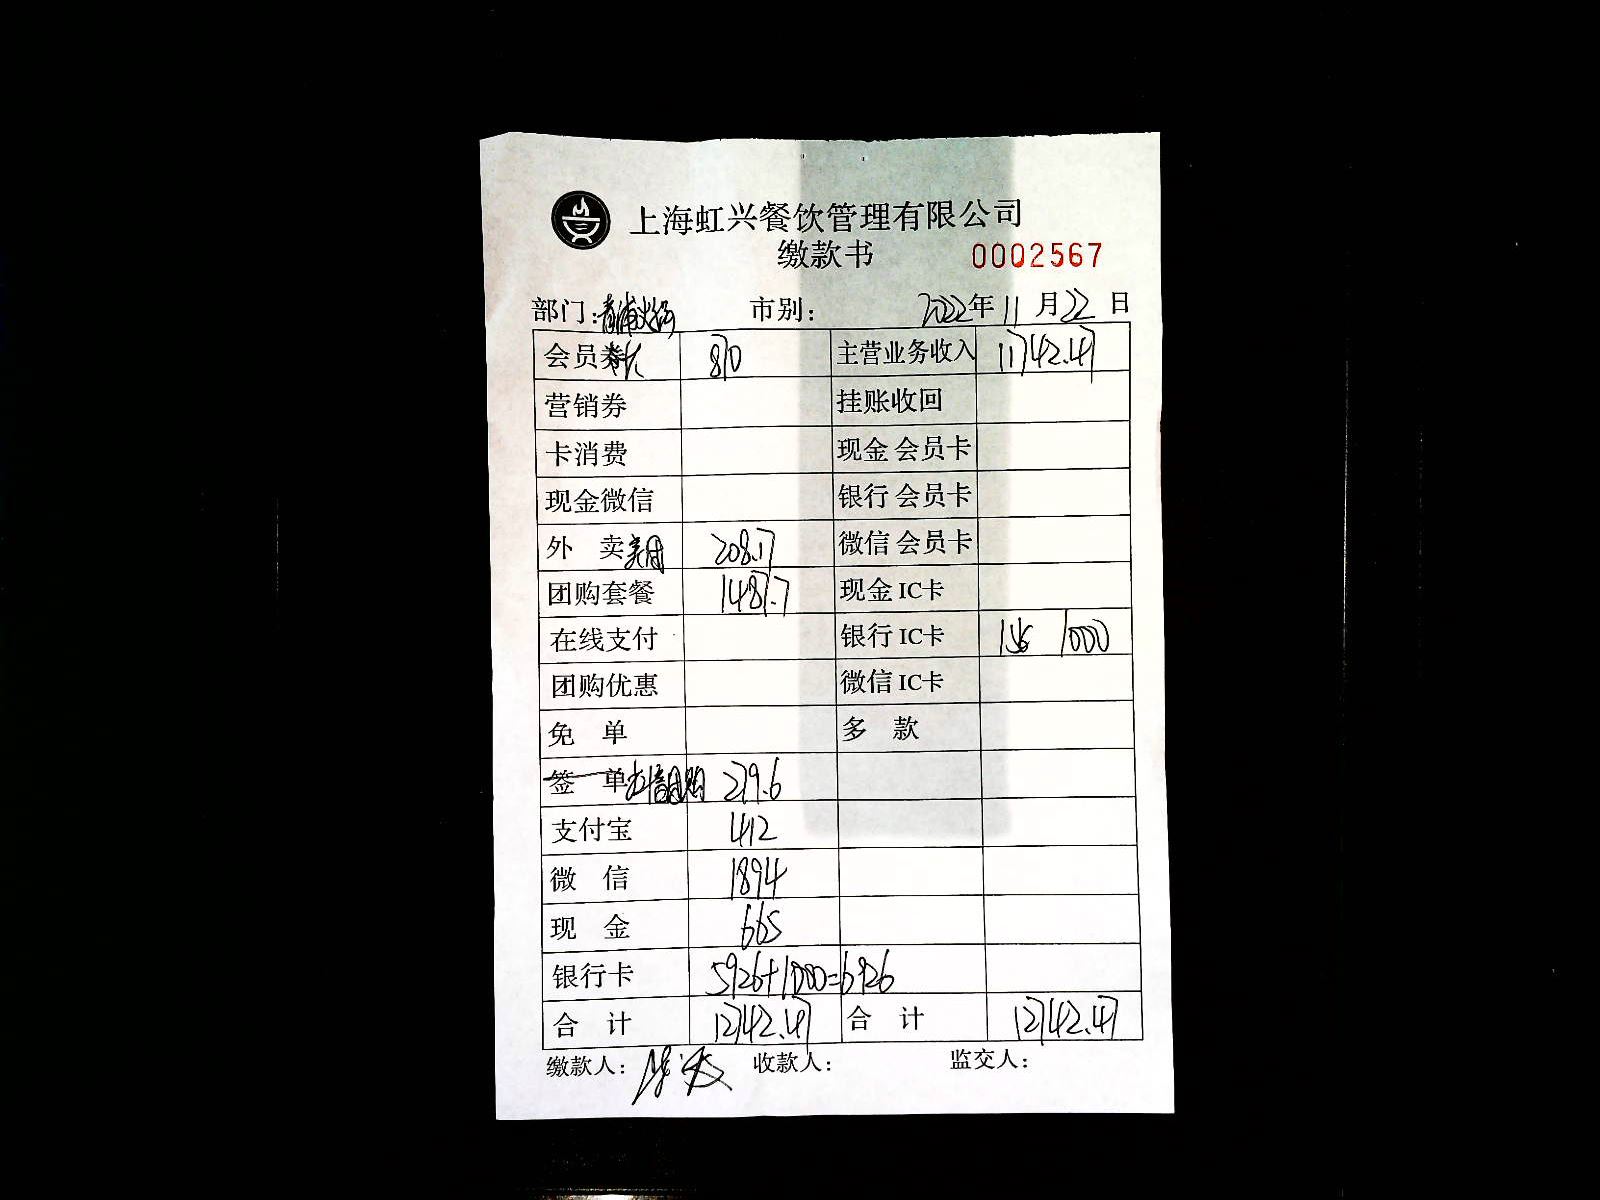 上海虹兴餐饮管理有限公司
缴款书 0002567
部门: 青浦 市别: 2022年11月22日
会员 870 主营业务收入 11742.47
营销券 挂账收回
卡消费 现金 会员卡
现金微信 银行 会员卡
外 卖 美团 208.17 微信 会员卡
团购套餐 1487.7 现金 IC卡
在线支付 银行 IC卡 1000
团购优惠 微信 IC卡
免 单 多 款
签 单 抖音团购 279.6
支付宝 412
微 信 1894
现 金 665
银行卡 5926+1000=6926
合 计 12742.47 合 计 12742.47
缴款人: 收款人: 监交人: